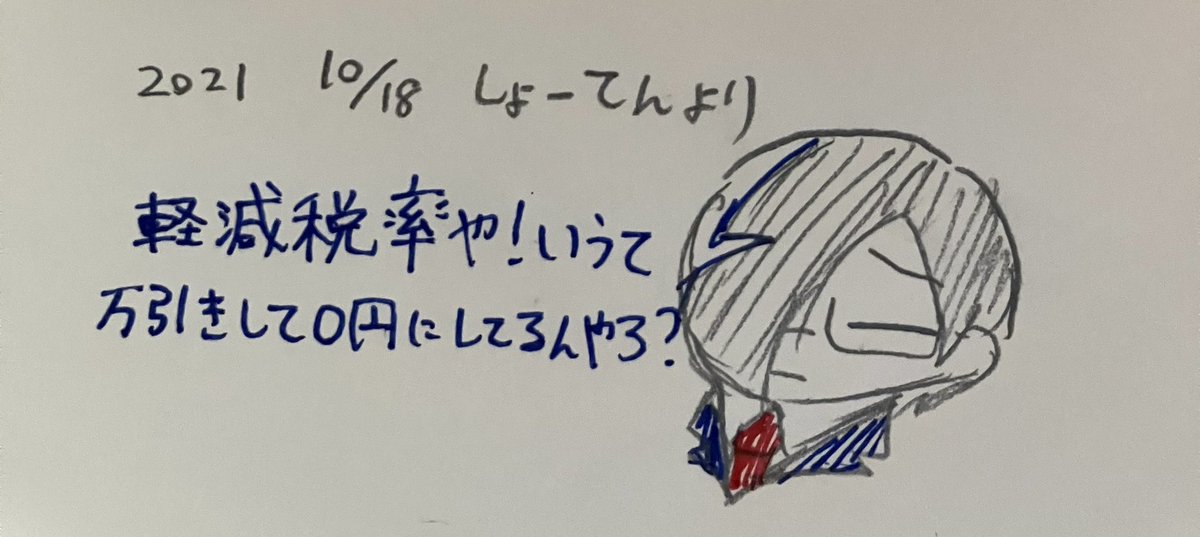 2021 10/18 しょーてんより
軽減税率や!いうて
万引きして0円にしてるんやろ?